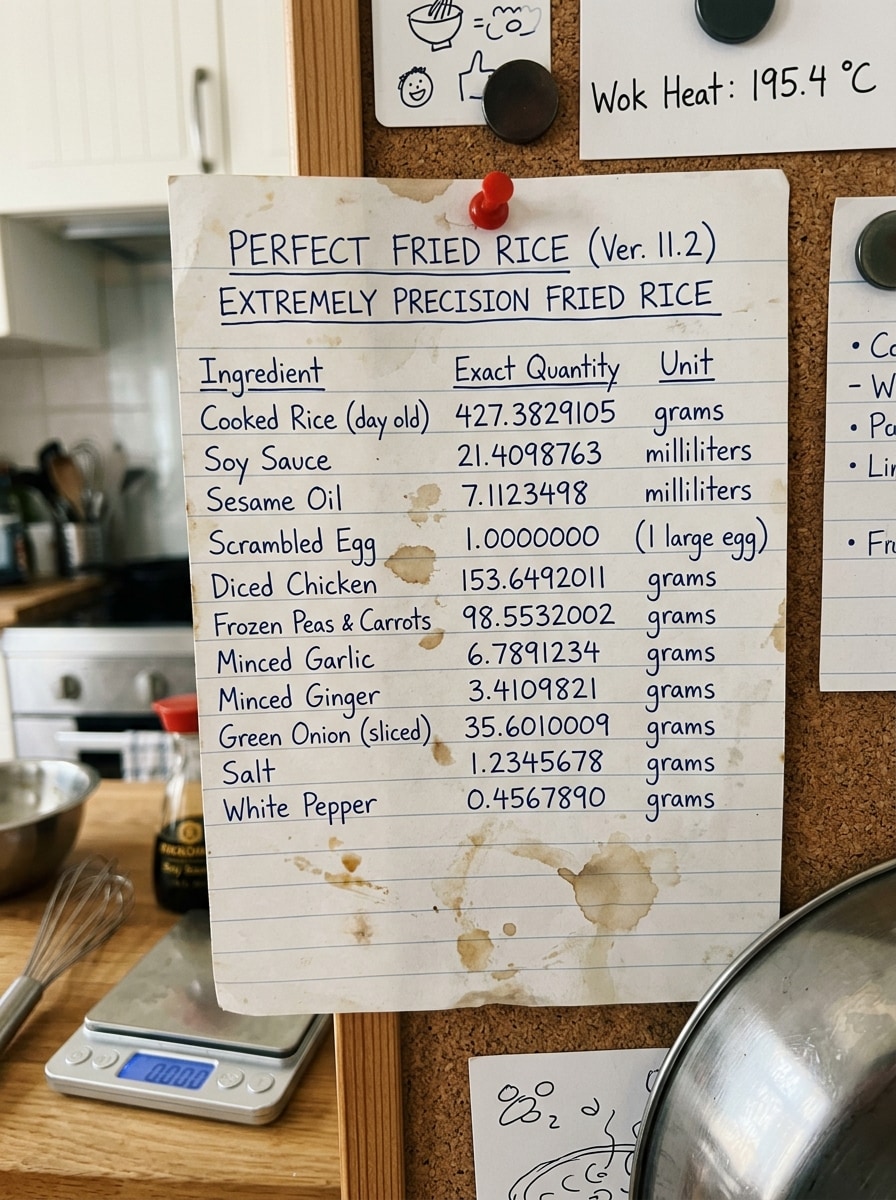 Wok Heat: 195.4 °C
PERFECT FRIED RICE (Ver. 11.2)
EXTREMELY PRECISION FRIED RICE
Ingredient Exact Quantity Unit
Cooked Rice (day old) 427.3829105 grams
Soy Sauce 21.4098763 milliliters
Sesame Oil 7.1123498 milliliters
Scrambled Egg 1.0000000 (1 large egg)
Diced Chicken 153.6492011 grams
Frozen Peas & Carrots 98.5532002 grams
Minced Garlic 6.7891234 grams
Minced Ginger 3.4109821 grams
Green Onion (sliced) 35.6010009 grams
Salt 1.2345678 grams
White Pepper 0.4567890 grams